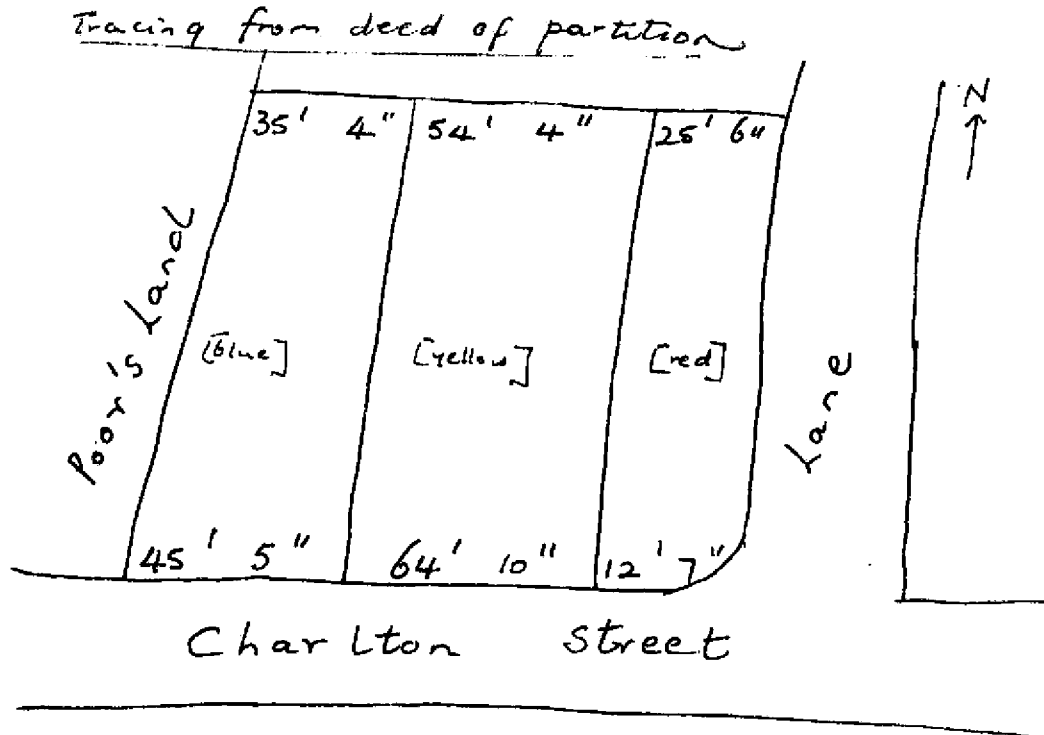 Tracing from deed of partition
N
35' 4" 54' 4" 25' 6"
Poor's Land
[blue] [yellow] [red]
Lane
45' 5" 64' 10" 12' 7"
Charlton Street